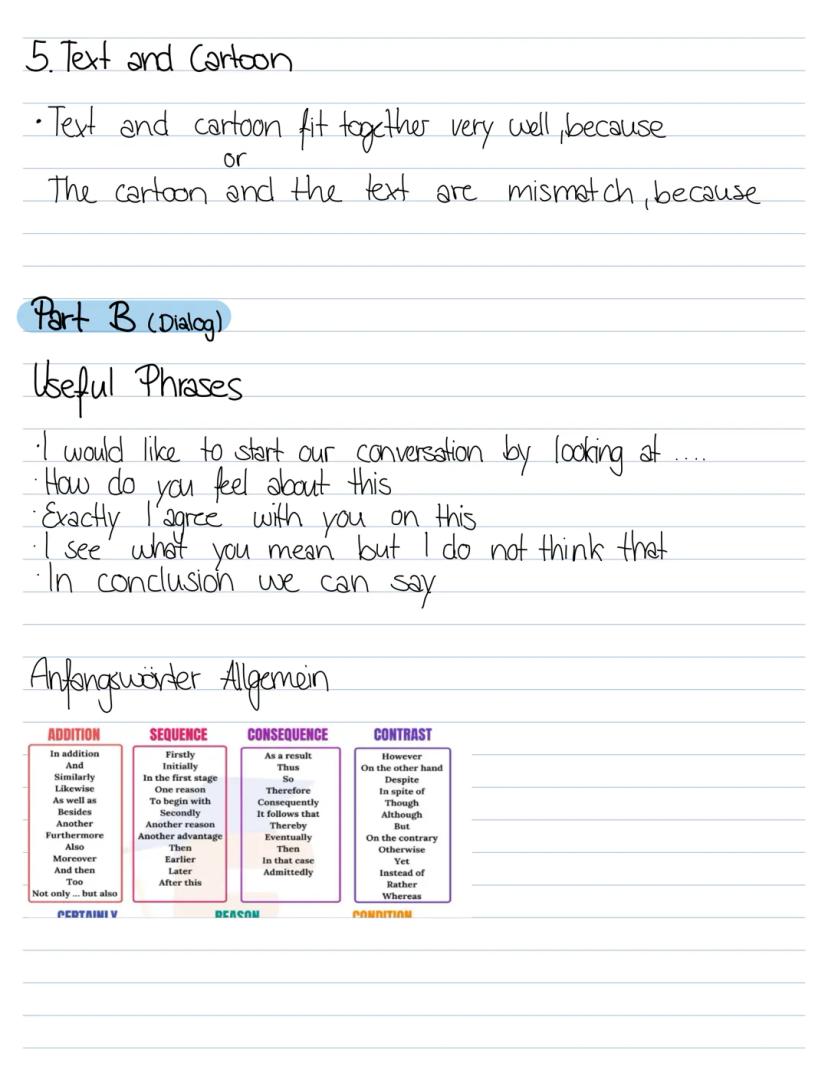 5. Text and Cartoon
• Text and cartoon fit together very well, because
or
The cartoon and the text are mismatch, because
Part B (Dialog)
Useful Phrases
• I would like to start our conversation by looking at ....
• How do you feel about this
• Exactly I agree with you on this
• I see what you mean but I do not think that
• In conclusion we can say
Anfangswörter Allgemein
ADDITION
In addition
And
Similarly
Likewise
As well as
Besides
Another
Furthermore
Also
Moreover
And then
Too
Not only ... but also
SEQUENCE
Firstly
Initially
In the first stage
One reason
To begin with
Secondly
Another reason
Another advantage
Then
Earlier
Later
After this
CONSEQUENCE
As a result
Thus
So
Therefore
Consequently
It follows that
Thereby
Eventually
Then
In that case
Admittedly
CONTRAST
However
On the other hand
Despite
In spite of
Though
Although
But
On the contrary
Otherwise
Yet
Instead of
Rather
Whereas
CERTAINLY
REASON
CONDITION